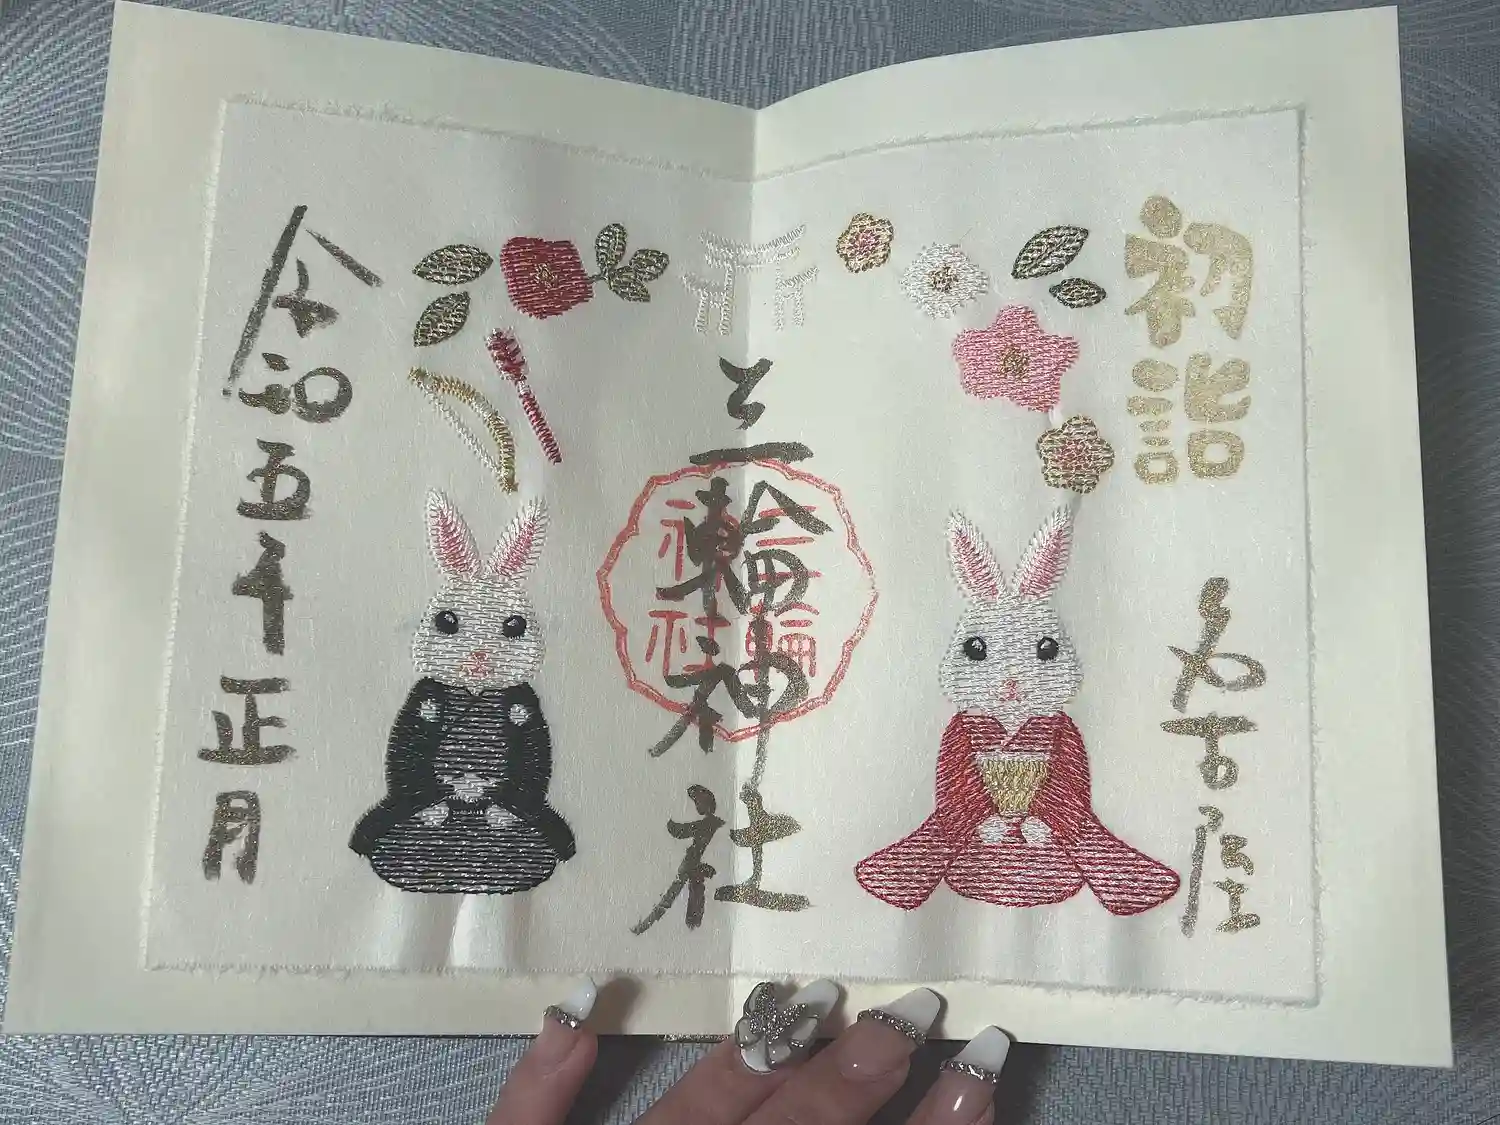 初詣
名古屋
三輪神社
三輪
神社
令和五年正月